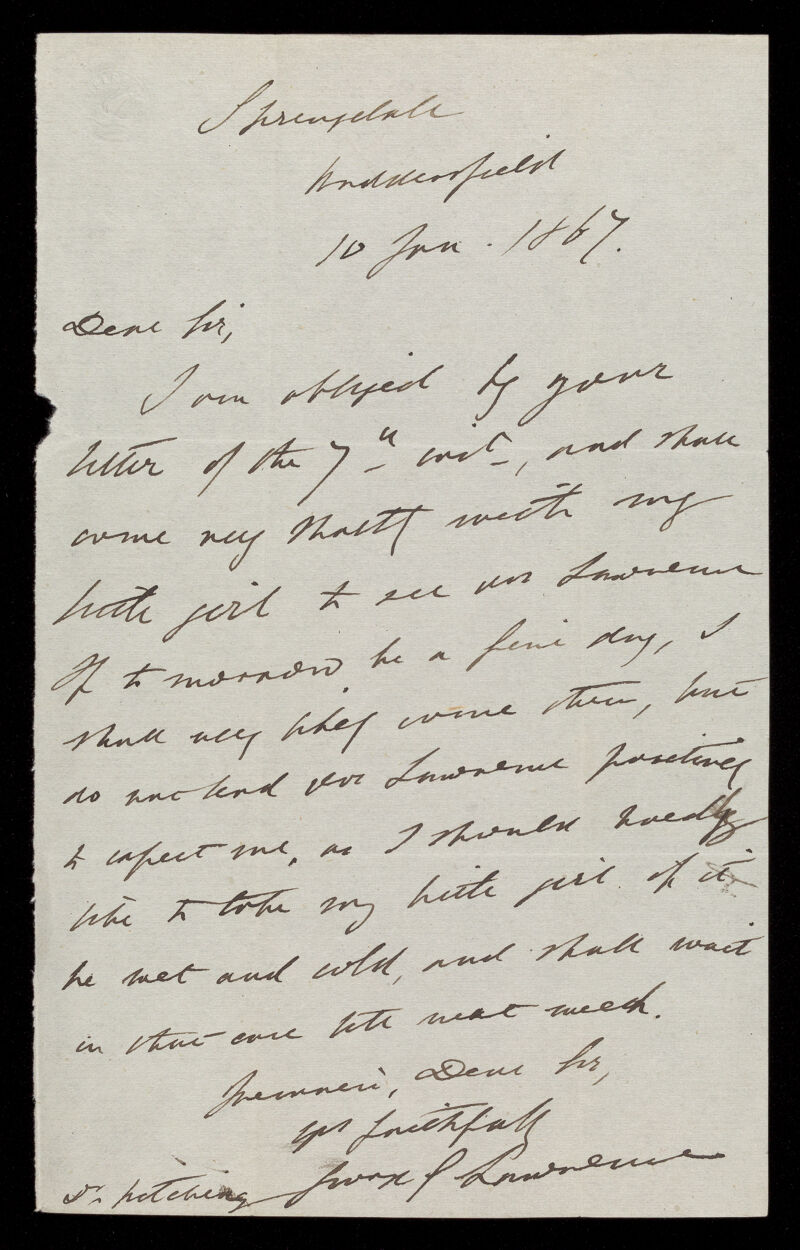 Springdale
Huddersfield
10 Jan. 1867.
Dear Sir,
I am obliged by your
letter of the 7th inst, and shall
come very shortly with my
little girl to see Mrs Lawrence
If tomorrow be a fine day, I
shall very likely come then, but
do not lead Mrs Lawrence positively
to expect me, as I should hardly
like to take my little girl if it
be wet and cold, and shall wait
in that case till next week.
I remain, Dear Sir,
yrs faithfully
Lawrence
Dr Kitching